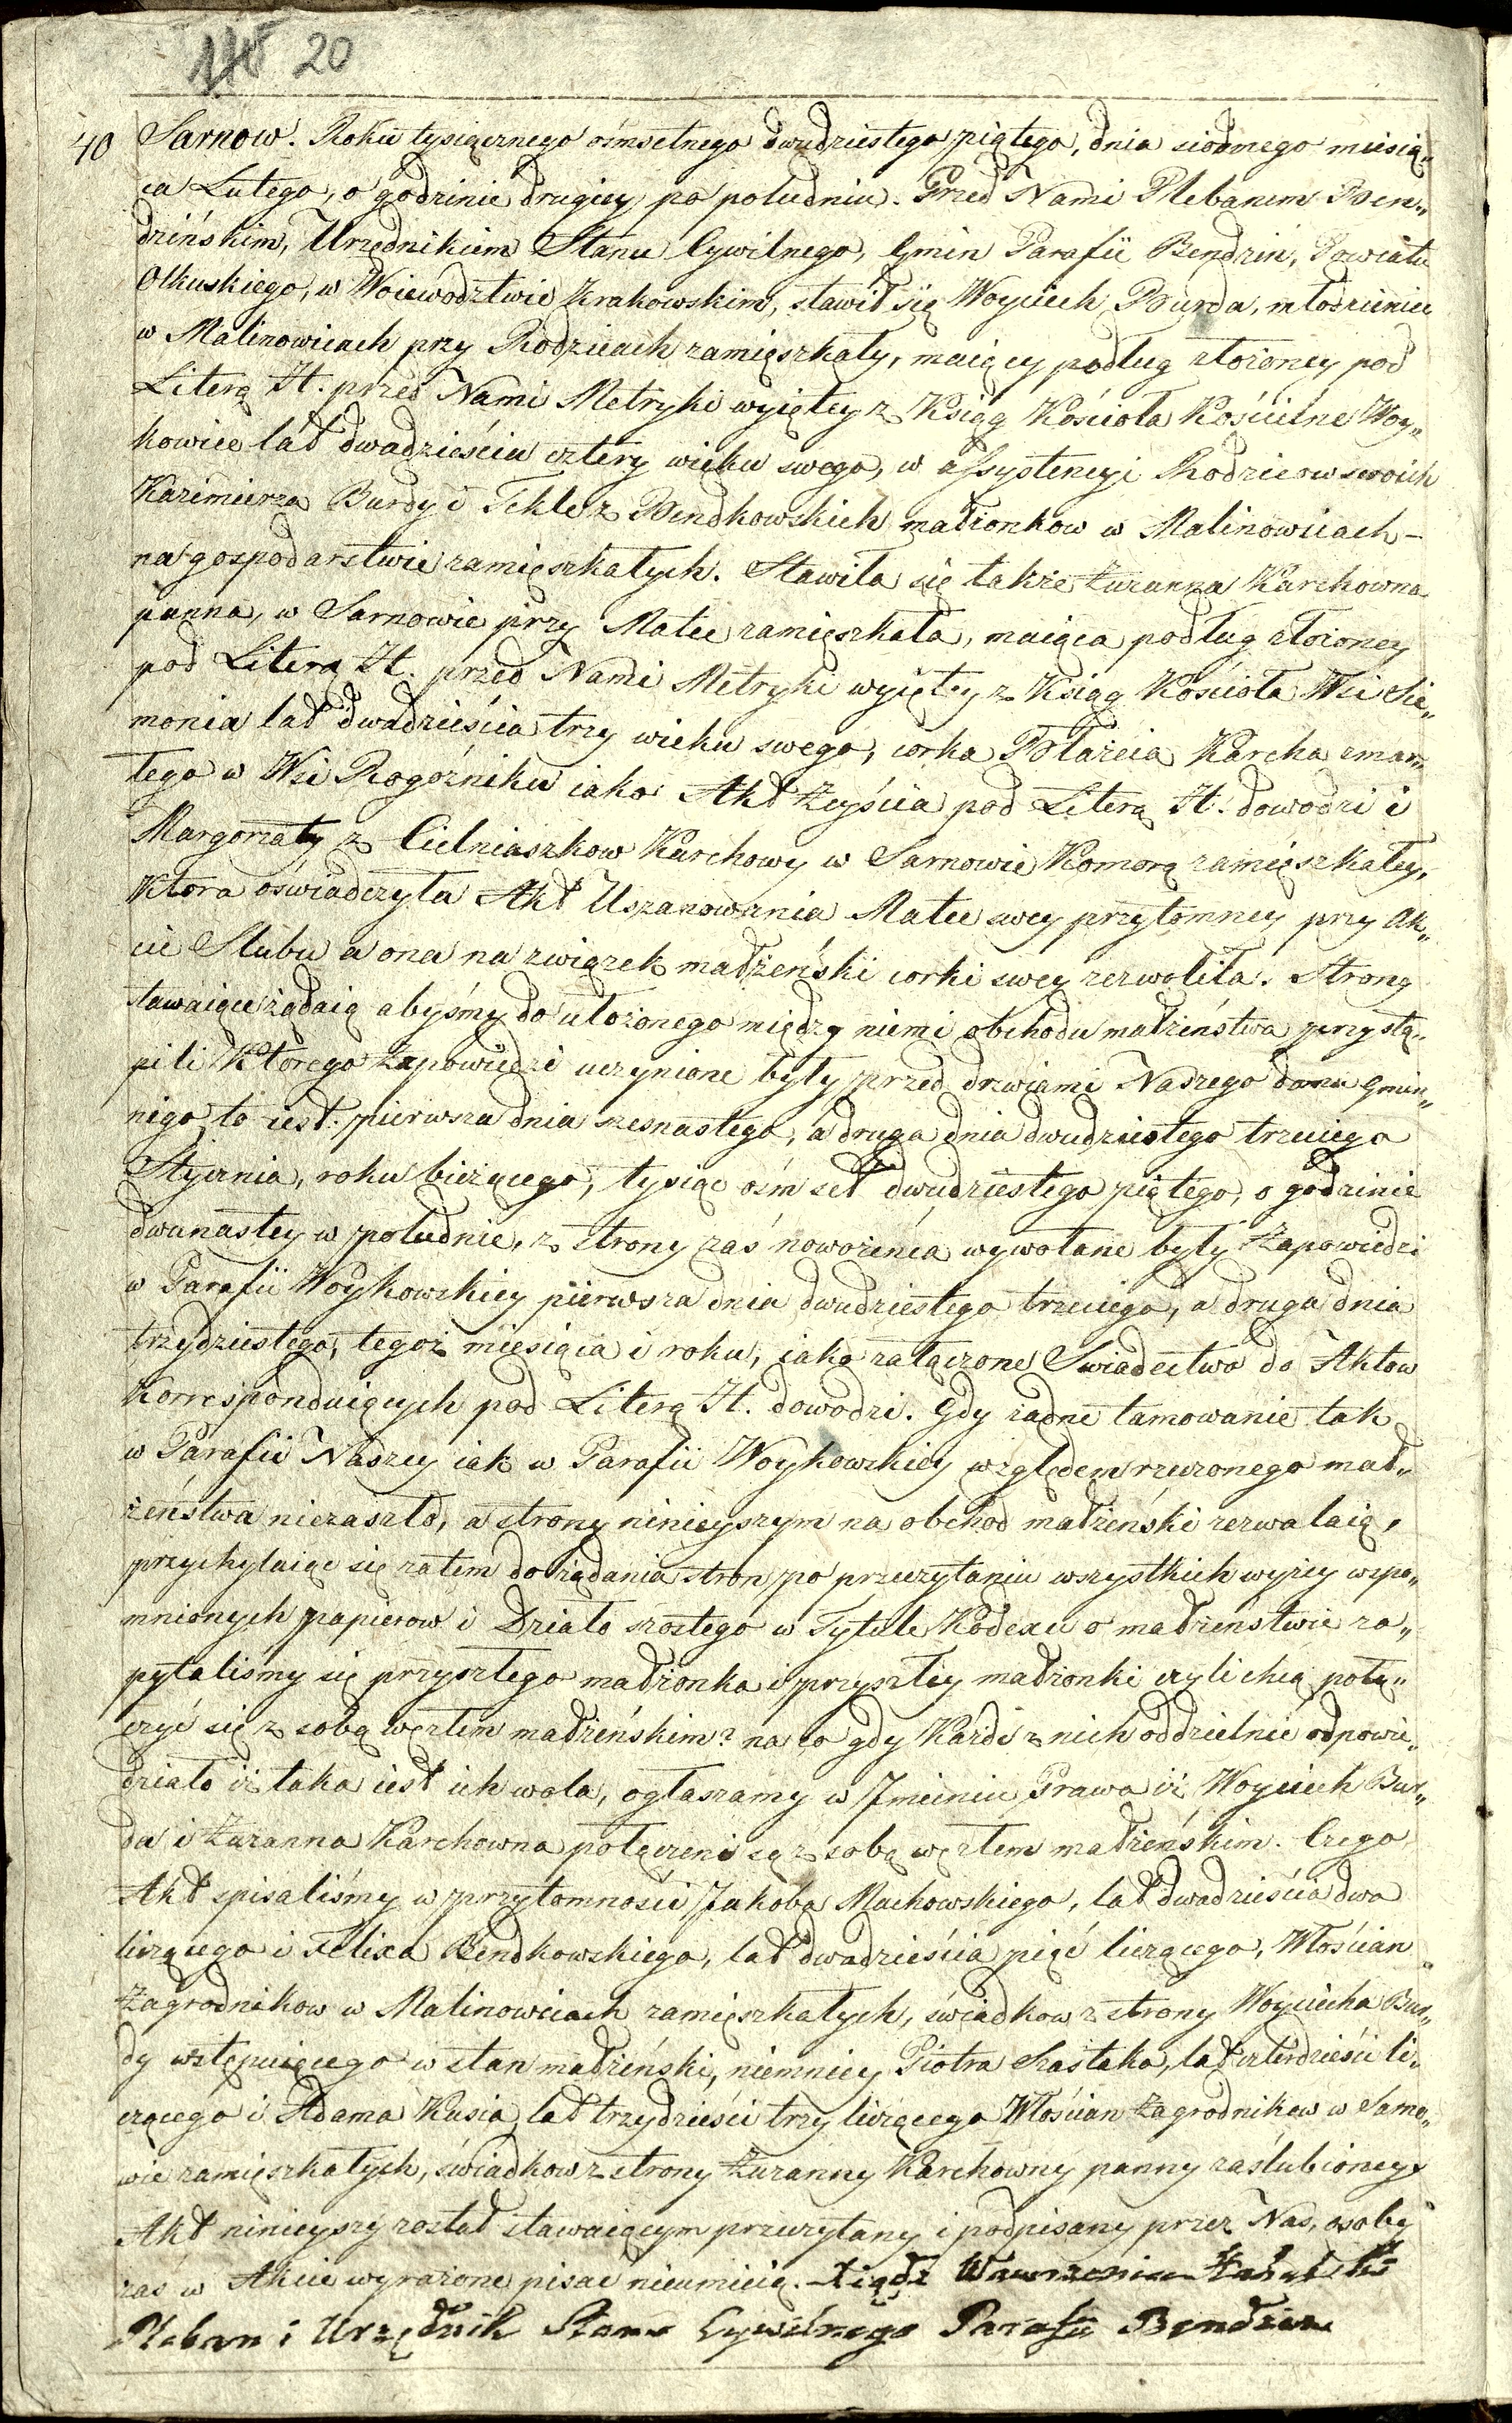 20
40 Sarnow. Roku tysiącznego ośmsetnego dwudziestego piątego, dnia siodmego miesią„
ca Lutego, o godzinie drugiey po południu. Przed Nami Plebanem Ben„
dzińskim, Urzędnikiem Stanu Cywilnego, Gmin Parafii Bendzin, Powiatu
Olkuskiego, w Woiewodztwie Krakowskim, stawił się Woyciech Burda, młodzieniec
w Malinowicach przy Rodzicach zamięszkały, maiący podług złożoney pod
Literą H. przed Nami Metryki wyiętey z Ksiąg Kościoła Kościelne Woy„
kowice lat dwadzieścia cztery wieku swego, w assystencyi Rodzicow swoich
Kazimierza Burdy i Tekle z Bendkowskich małżonkow w Malinowicach –
na gospodarstwie zamięszkałych. Stawiła się także Zuzanna Karchowna
panna, w Sarnowie przy Matce zamięszkała, maiąca podług złożoney
pod Literą H. przed Nami Metryki wyiętey z Ksiąg Kościoła Wsi Sie„
monia lat dwadzieścia trzy wieku swego, corka Błażeia Karcha zmar„
łego w Wsi Rogoźniku iako Akt Zeyścia pod Literą H. dowodzi i
Margorzaty z Cielniaszkow Karchowy w Sarnowie Komorą zamięszkałey,
ktora oświadczyła Akt Uszanowania Matce swey przytomney przy Ak„
cie Slubu a ona na związek małżeński corki swey zezwoliła. Strony
stawaiące żądaią abyśmy do ułożonego między niemi obchodu małżeństwa przystą„
pili którego Zapowiedzi uczynione były przed drzwiami Naszego domu Gmin„
nego, to iest: pierwsza dnia szesnastego, a druga dnia dwudziestego trzeciego
Stycznia, roku bieżącego, tysiąc ośmset dwudziestego piątego, o godzinie
dwunastey w południe, z strony zaś nowożeńca wywołane były Zapowiedzi
w Parafii Woykowskiey pierwsza dnia dwudziestego trzeciego, a druga dnia
trzydziestego, tegoż miesiąca i roku, iako załączone Swiadectwo do Aktow
Korrespondujących pod Literą H. dowodzi. Gdy żadne tamowanie tak
w Parafii Naszey iak w Parafii Woykowskiey względem rzeczonego mał„
żeństwa niezaszło, a strony ninieyszym na obchod małżeński zezwalaią,
przychylaiąc się zatem do żądania stron po przeczytaniu wszystkich wyżey wspo„
mnionych papierow i Działo szostego w Tytule Kodexu o małżeństwie za„
pytaliśmy się przyszłego małżonka i przyszłey małżonki czyli chcą połą„
czyć się z sobą węzłem małżeńskim? na co gdy Każde z nich oddzielnie odpowie„
działo iż taka iest ich wola, ogłaszamy w Jmieniu Prawa iż Woyciech Bur„
da i Zuzanna Karchowna połączeni są z sobą węzłem małżeńskim. Czego
Akt spisaliśmy w przytomności Jakoba Machowskiego, lat dwadzieścia dwa
liczącego i Felixa Bendkowskiego, lat dwadzieścia pięć liczącego, Włościan
Zagrodnikow w Malinowicach zamięszkałych, świadkow z strony Woyciecha Bur„
dy wstępuiącego w stan małżeński, niemniey Piotra Szastaka, lat czterdzieści li„
czącego i Adama Kusia lat trzydzieści trzy liczącego Włościan Zagrodnikow w Sarno„
wie zamięszkałych, świadkow z strony Zuzanny Karchowny panny zaślubioney.
Akt ninieyszy został stawaiącym przeczytany i podpisany przez Nas, osoby
zaś w Akcie wyrażone pisać nieumieią. Xiądz Wawrzeniec
Pleban i Urzędnik Stanu Cywilnego Parafii Bendzin